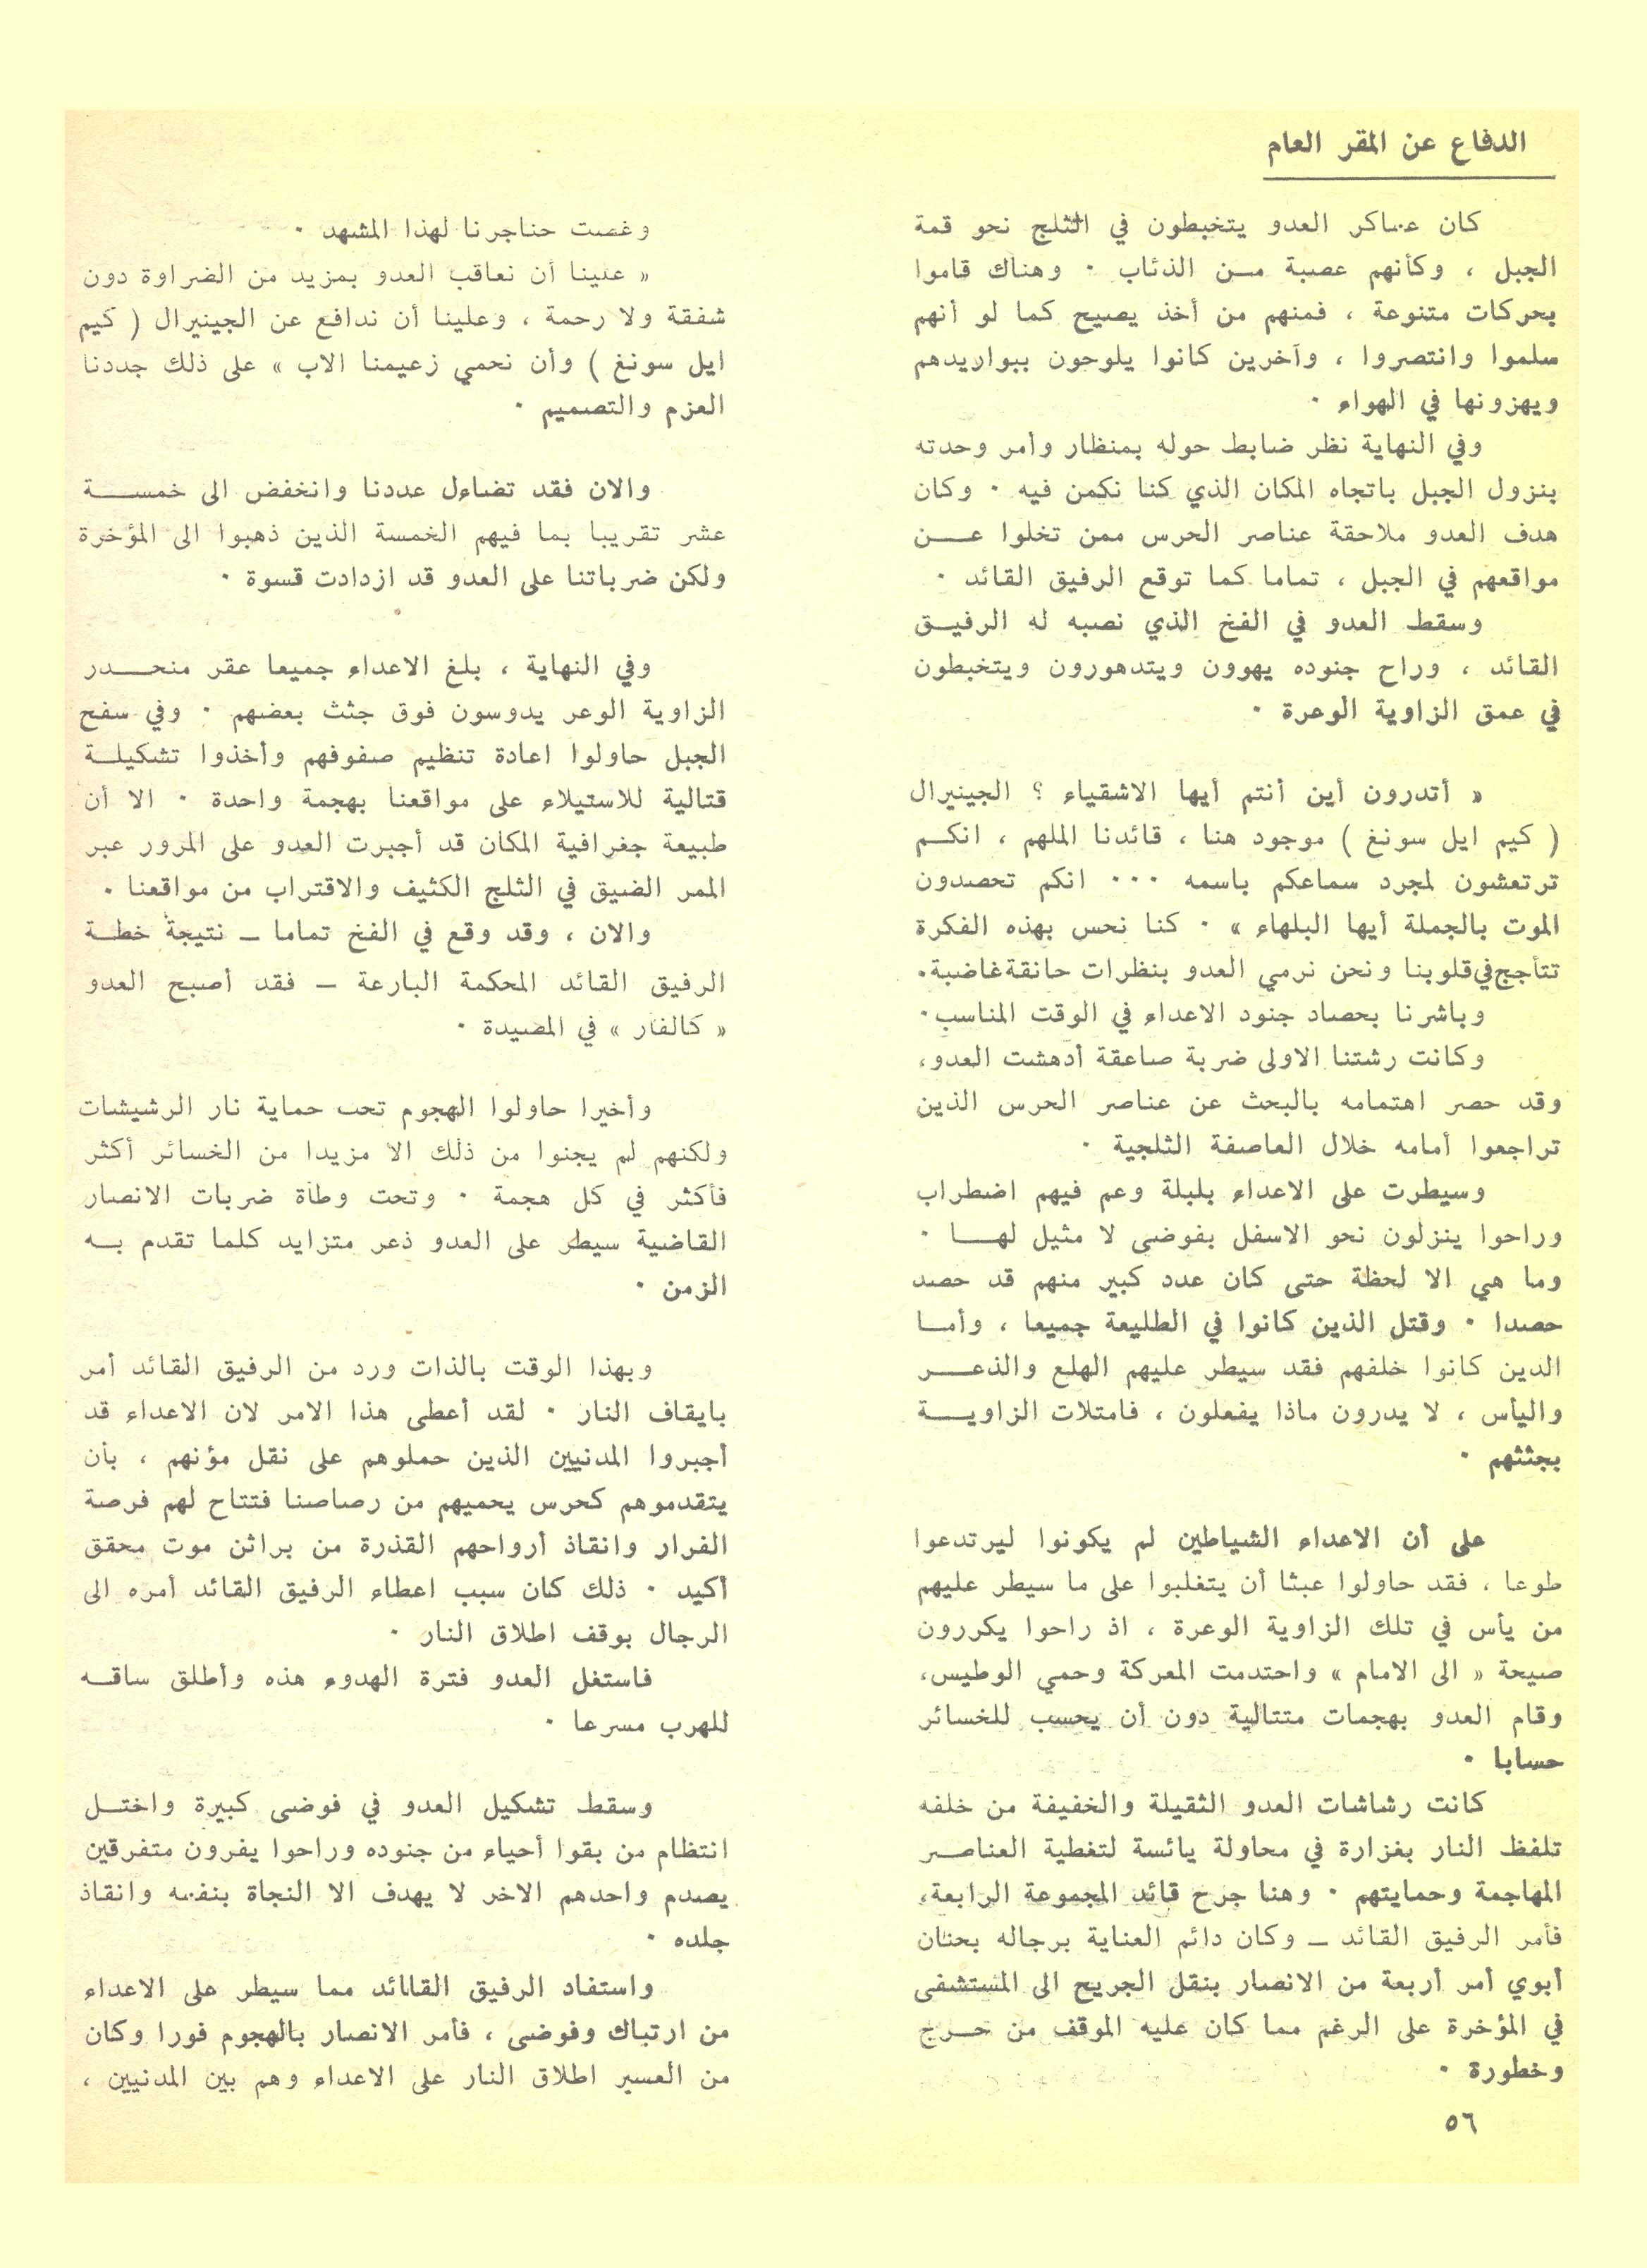 الدفاع عن المقر العام
كان عساكر العدو يتخبطون في الثلج نحو قمة
الجبل ، وكأنهم عصبة مـن الذئاب ٠ وهناك قاموا
بحركات متنوعة ، فمنهم من أخذ يصيح كما لو أنهم
سلموا وانتصروا ، وآخرين كانوا يلوحون ببواريدهم
ويهزونها في الهواء ٠
وفي النهاية نظر ضابط حوله بمنظار وأمر وحدته
بنزول الجبل باتجاه المكان الذي كنا نكمن فيه ٠ وكان
هدف العدو ملاحقة عناصر الحرس ممن تخلوا عـــن
مواقعهم في الجبل ، تماما كما توقع الرفيق القائد ٠
وسقط العدو في الفخ الذي نصبه له الرفيـق
القائد ، وراح جنوده يهوون ويتدهورون ويتخبطون
في عمق الزاوية الوعرة ٠
« أتدرون أين أنتم أيها الاشقياء ؟ الجينيرال
( كيم ايل سونغ ) موجود هنا ، قائدنا الملهم ، انكـم
ترتعشون لمجرد سماعكم باسمه ٠٠٠ انكم تحصدون
الموت بالجملة أيها البلهاء » ٠ كنا نحس بهذه الفكرة
تتأجج في قلوبنا ونحن نرمي العدو بنظرات حانقة غاضبة٠
وباشرنا بحصاد جنود الاعداء في الوقت المناسب٠
وكانت رشتنا الاولى ضربة صاعقة أدهشت العدو،
وقد حصر اهتمامه بالبحث عن عناصر الحرس الذين
تراجعوا أمامه خلال العاصفة الثلجية ٠
وسيطرت على الاعداء بلبلة وعم فيهم اضطراب
وراحوا ينزلون نحو الاسفل بفوضى لا مثيل لهـــا ٠
وما هي الا لحظة حتى كان عدد كبير منهم قد حصد
حصدا ٠ وقتل الذين كانوا في الطليعة جميعا ، وأمـا
الدين كانوا خلفهم فقد سيطر عليهم الهلع والذعـــر
واليأس ، لا يدرون ماذا يفعلون ، فامتلات الزاويـــة
بجثثهم ٠
على أن الاعداء الشياطين لم يكونوا ليرتدعوا
طوعا ، فقد حاولوا عبثا أن يتغلبوا على ما سيطر عليهم
من يأس في تلك الزاوية الوعرة ، اذ راحوا يكررون
صيحة « الى الامام » واحتدمت المعركة وحمي الوطيس،
وقام العدو بهجمات متتالية دون أن يحسب للخسائر
حسابا ٠
كانت رشاشات العدو الثقيلة والخفيفة من خلفه
تلفظ النار بغزارة في محاولة يائسة لتغطية العناصـر
المهاجمة وحمايتهم ٠ وهنا جرح قائد المجموعة الرابعة،
فأمر الرفيق القائد ــ وكان دائم العناية برجاله بحنان
أبوي أمر أربعة من الانصار بنقل الجريح الى المستشفى
في المؤخرة على الرغم مما كان عليه الموقف من حـرج
وخطورة ٠
وغصت حناجرنا لهذا المشهد ٠
« علينا أن نعاقب العدو بمزيد من الضراوة دون
شفقة ولا رحمة ، وعلينا أن ندافع عن الجينيرال ( كيم
ايل سونغ ) وأن نحمي زعيمنا الاب » على ذلك جددنا
العزم والتصميم ٠
والان فقد تضاءل عددنا وانخفض الى خمســـة
عشر تقريبا بما فيهم الخمسة الذين ذهبوا الى المؤخرة
ولكن ضرباتنا على العدو قد ازدادت قسوة ٠
وفي النهاية ، بلغ الاعداء جميعا عقر منحـــدر
الزاوية الوعر يدوسون فوق جثث بعضهم ٠ وفي سفح
الجبل حاولوا اعادة تنظيم صفوفهم وأخذوا تشكيلـة
قتالية للاستيلاء على مواقعنا بهجمة واحدة ٠ الا أن
طبيعة جغرافية المكان قد أجبرت العدو على المرور عبر
الممر الضيق في الثلج الكثيف والاقتراب من مواقعنا ٠
والان ، وقد وقع في الفخ تماما ــ نتيجة خطـة
الرفيق القائد المحكمة البارعة ــ فقد أصبح العدو
« كالفار » في المصيدة ٠
وأخيرا حاولوا الهجوم تحت حماية نار الرشيشات
ولكنهم لم يجنوا من ذلك الا مزيدا من الخسائر أكثر
فأكثر في كل هجمة ٠ وتحت وطأة ضربات الانصار
القاضية سيطر على العدو ذعر متزايد كلما تقدم بـه
الزمن ٠
وبهذا الوقت بالذات ورد من الرفيق القائد أمر
بايقاف النار ٠ لقد أعطى هذا الامر لان الاعداء قد
أجبروا المدنيين الذين حملوهم على نقل مؤنهم ، بأن
يتقدموهم كحرس يحميهم من رصاصنا فتتاح لهم فرصة
الفرار وانقاذ أرواحهم القذرة من براثن موت محقق
أكيد ٠ ذلك كان سبب اعطاء الرفيق القائد أمره الى
الرجال بوقف اطلاق النار ٠
فاستغل العدو فترة الهدوء هذه وأطلق ساقـه
للهرب مسرعا ٠
وسقط تشكيل العدو في فوضى كبيرة واختـل
انتظام من بقوا أحياء من جنوده وراحوا يفرون متفرقين
يصدم واحدهم الاخر لا يهدف الا النجاة بنفسه وانقاذ
جلده ٠
واستفاد الرفيق القاائد مما سيطر على الاعداء
من ارتباك وفوضى ، فأمر الانصار بالهجوم فورا وكان
من العسير اطلاق النار على الاعداء وهم بين المدنيين ،
٥٦